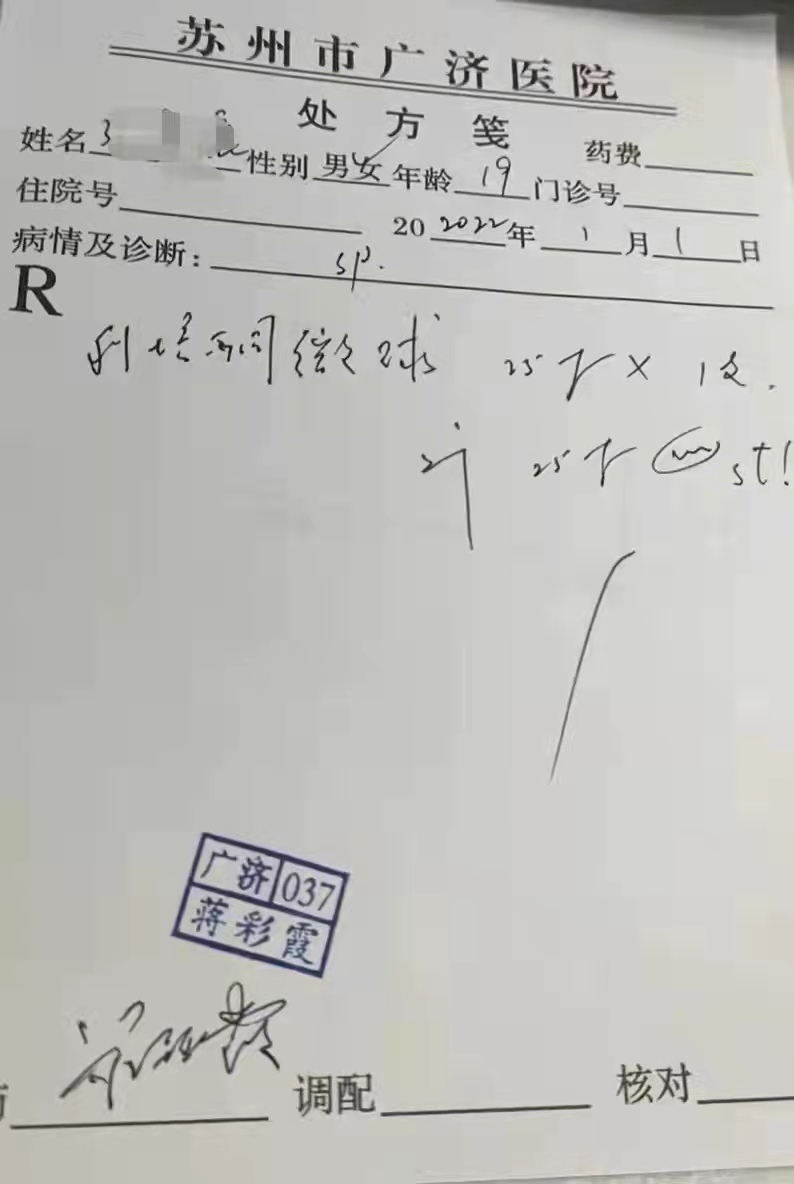 苏州市广济医院
处方笺
姓名 性别 男女 年龄 19 门诊号 药费
住院号 20 2022年 1 月 1 日
病情及诊断: sp.
R
利培酮微球 25 × 1支.
25 st!
广济 037
蒋彩霞
调配 核对